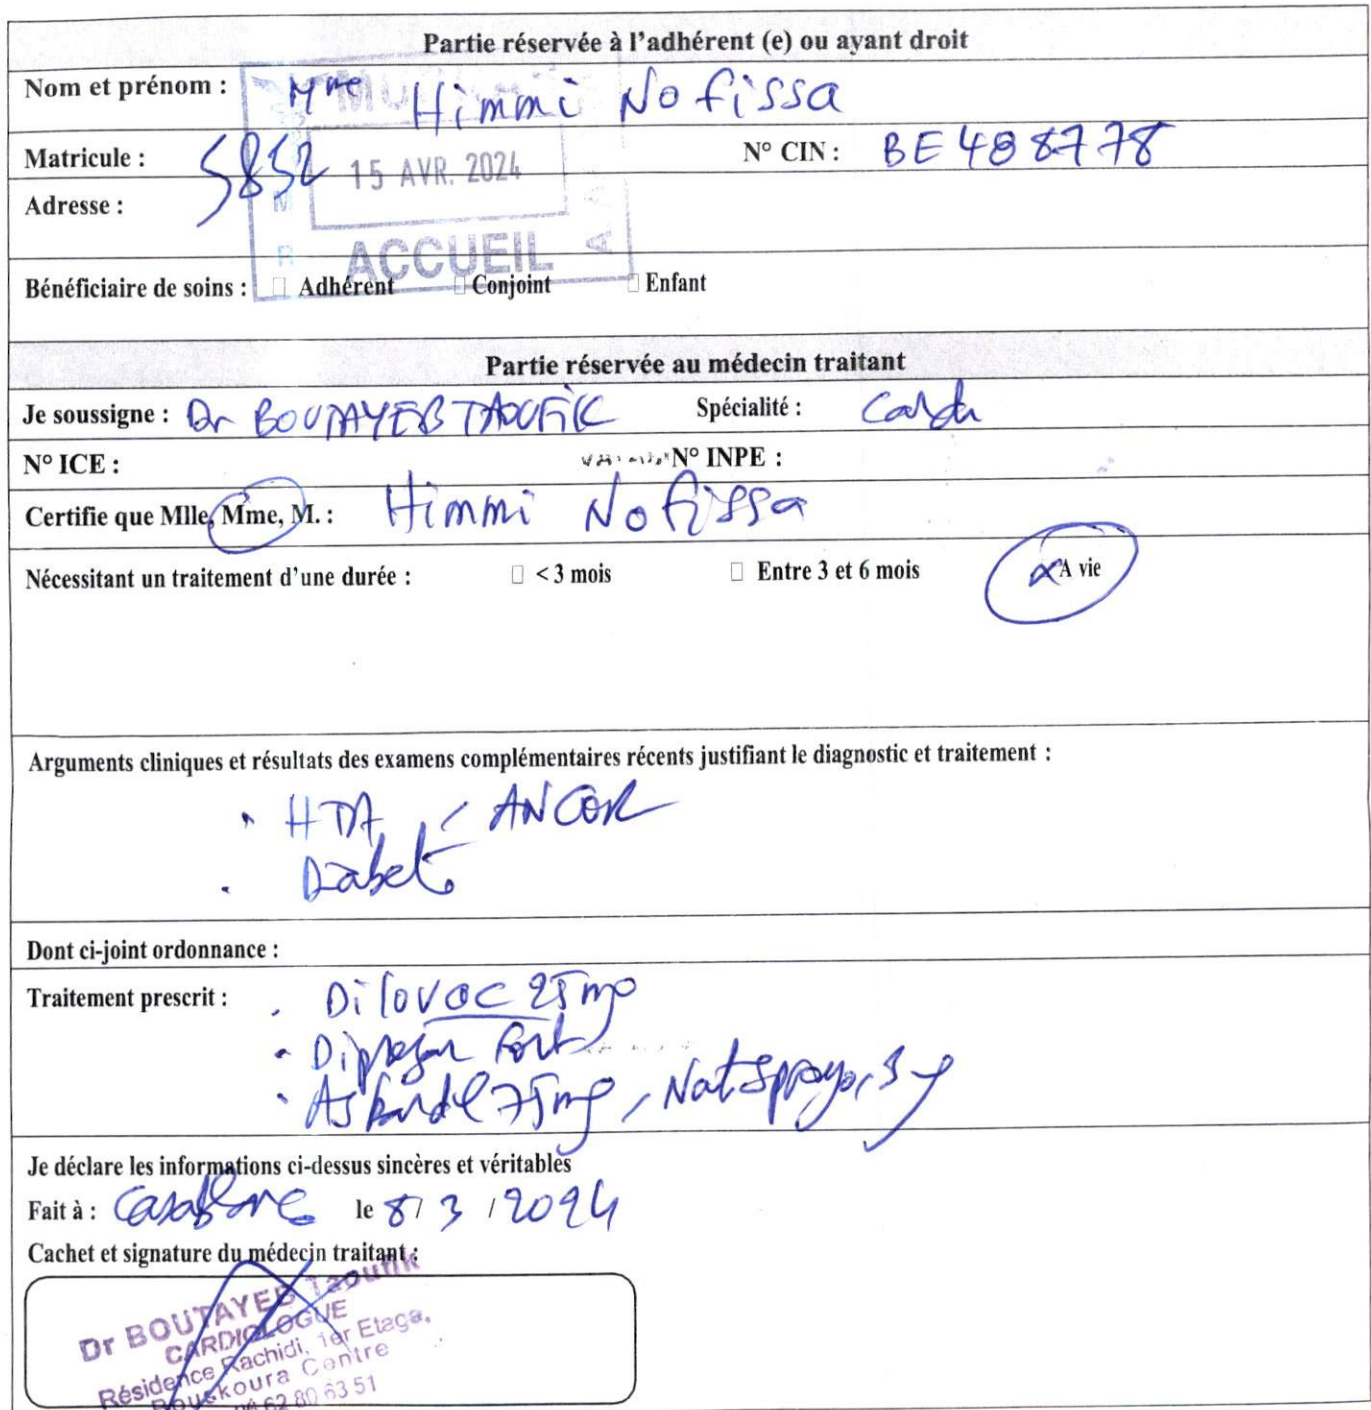 Partie réservée à l'adhérent (e) ou ayant droit
Nom et prénom : Mme Himmi Nofissa
Matricule : 5852 N° CIN : BE488778
15 AVR. 2024
Adresse :
ACCUEIL
Bénéficiaire de soins : Adhérent Conjoint Enfant
Partie réservée au médecin traitant
Je soussigne : Dr BOUTAYEB TAOUFIK Spécialité : Cardio
N° ICE : N° INPE :
Certifie que Mlle, Mme, M. : Himmi Nofissa
Nécessitant un traitement d'une durée : < 3 mois Entre 3 et 6 mois A vie
Arguments cliniques et résultats des examens complémentaires récents justifiant le diagnostic et traitement :
. HTA / ANCOR
. Diabète
Dont ci-joint ordonnance :
Traitement prescrit : . Dilovac 25mg
. Fort
. 75mg, Natispray
Je déclare les informations ci-dessus sincères et véritables
Fait à : Casablanca le 8/3/2024
Cachet et signature du médecin traitant :
Dr BOUTAYEB Taoufik
CARDIOLOGUE
Résidence Rachidi, 1er Etage,
Bouskoura Centre
62 80 63 51